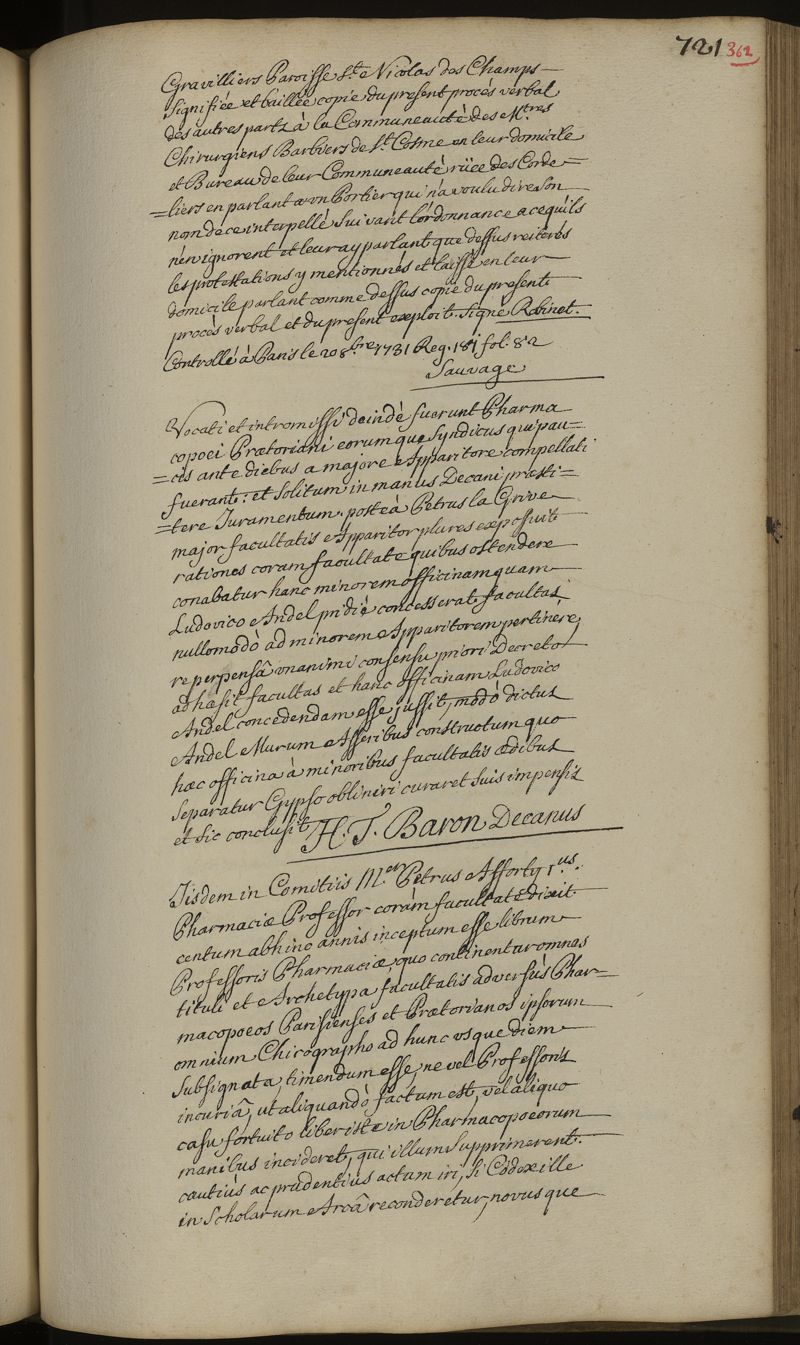 721 362
Gravilliers Paroisse St. Nicolas des Champs
Signifiée et baillée copie du present procès verbal
des autres parts à la Communeauté des Mtres
Chirurgiens Barbiers de St. Cosme en leur domicile
et Bureau de leur Communeauté rüe des Corde=
=liers en parlant a un Portier qui n'a voulu dire son
nom de ce interpellé suivant l'ordonnance a ce qu'ils
n'en ignorent et leur ay parlant que dessus reiterés
les protestations y mentionnés et laissé en leur
domicile parlant comme dessus copie du present
procès verbal et du present exploit. Signé Robinet.
Controllé à Paris le 20 8.bre 1731 Reg. 181 fol. 82
Sauvage
Vocati et intromissi deindè fuerunt Pharma
copoei Prætoriani eorumque Syndicus qui pau=
=cis ante diebus a majore Apparitore compellati
fuerant: et solitum in manus Decani præsti=
=tere Iuramentum. posteà Petrus la Grive
major facultatis Apparitor plures exposuit
rationes coram facultate quibus ostendere
conabatur hanc minorem officinam quam
Ludovico Andel pridiè concesserat facultas
nullomodò ad minorem Apparitorem pertinere,
re perpensâ unanimi consensu priori Decreto
adhæsit facultas et hanc officinam Ludovico
Andel concedendam esse jussit, modò dictus
Andel Murum Asseribus constructum quo
hæc officina à minoribus facultatis ædibus
separatur Gypso obliniri curaret suis impensis
et sic conclusit H. T. Baron Decanus
Iisdem in Comitiis M.er Petrus Afforty 1.us
Pharmaciæ Professor coràm facultate dixit
centum abhinc annis inceptum esse librum
Professoris Pharmaciæ, quo continentur omnes
tituli et Archetypa facultatis adversùs Phar=
macopoeos Parisienses et Prætorianos ipsorum
omnium Chirographo ad hunc usque diem
subsignata, timendum esse, ne vel Professoris
incuriâ, ut aliquandò factum est, vel aliquo
casu fortuito liber iste in Pharmacopoeorum
manibus incideret, qui illum supprimerent.
cautiùs ac prudentiùs actum iri, si Codex ille
in Scholarum Arcâ reconderetur, novus que